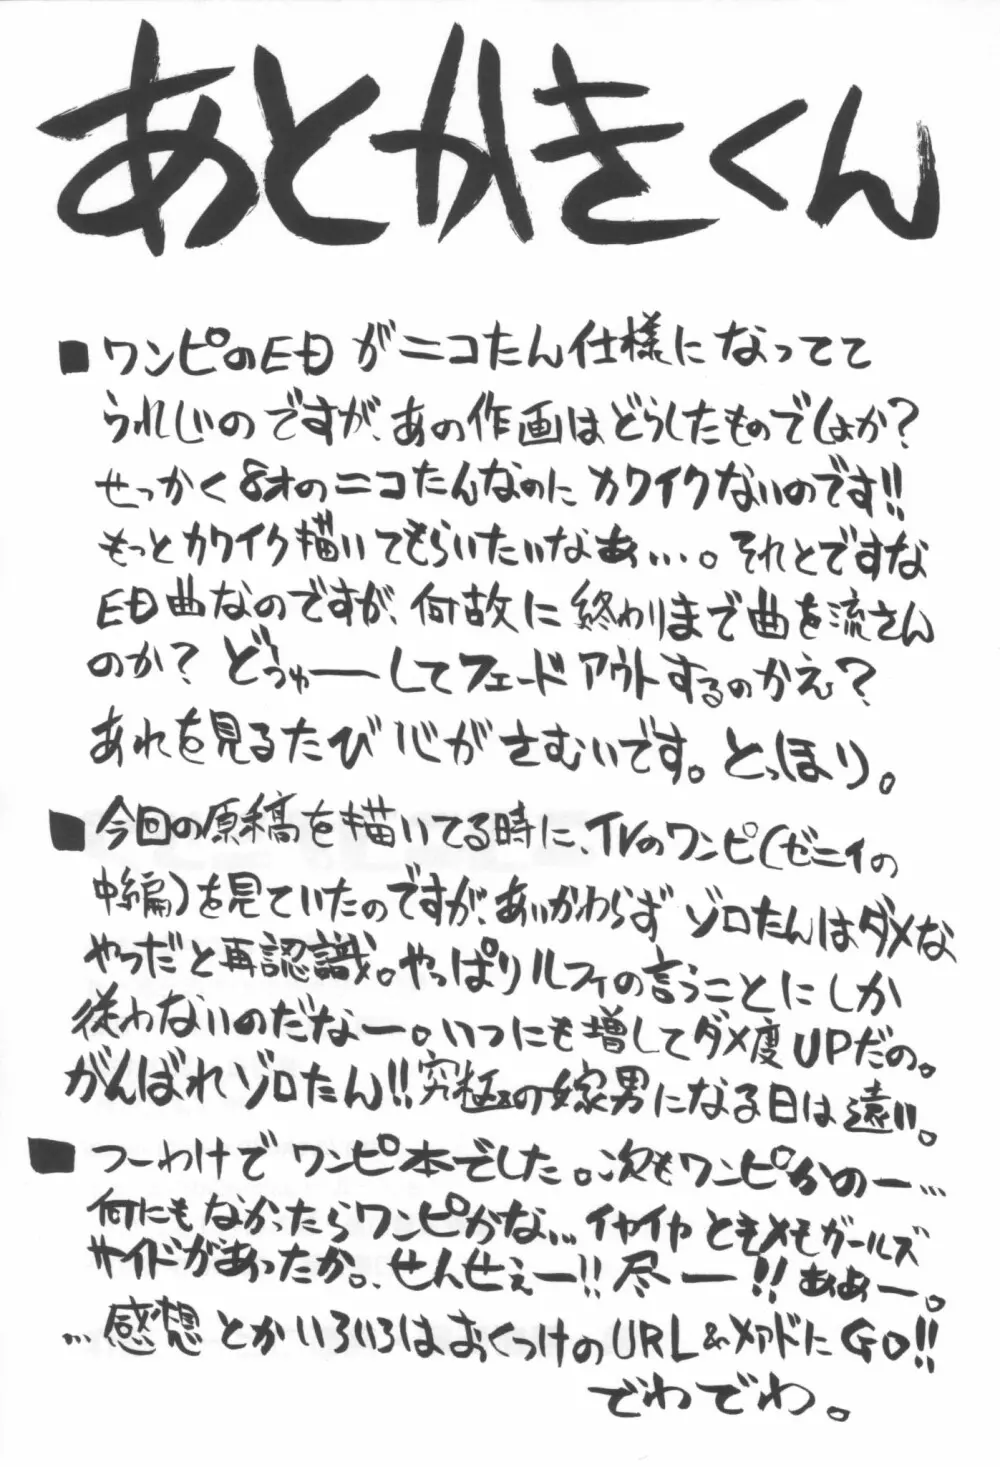 あとかきくん
■ワンピのEDがニコたん仕様になってて
うれしいのですが、あの作画はどうしたものでしょか?
せっかく8才のニコたんなのにカワイクないのです!!
もっとカワイク描いてもらいたいなあ…。それとですな
ED曲なのですが、何故に終わりまで曲を流さん
のか? どぅゅーーしてフェードアウトするのかえ?
あれを見るたび心がさむいです。とっほり。
■今回の原稿を描いてる時に、TVのワンピ(ゼニィの
中編)を見ていたのですが、あいかわらずゾロたんはダメな
やつだと再認識。やっぱりルフィの言うことにしか
従わないのだなー。いつにも増してダメ度UPだの。
がんばれゾロたん!!究極の嫁男になる日は遠い。
■つーわけでワンピ本でした。次もワンピかのー…
何にもなかったらワンピかな…イヤイヤときメモガールズ
サイドがあったか。せんせぇー!!尽ー!!ああー。
…感想とかいろいろはおくつけのURL&メアドにGO!!
でわでわ。